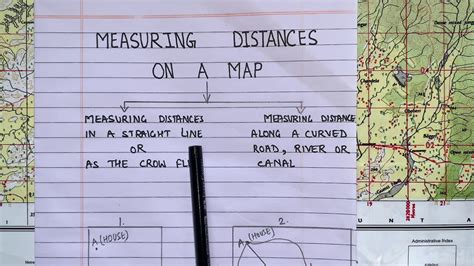 MEASURING DISTANCES
ON A MAP
MEASURING DISTANCES
IN A STRAIGHT LINE
OR
AS THE CROW
MEASURING DISTANCE
ALONG A CURVED
ROAD, RIVER OR
CANAL
1.
A (HOUSE)
2.
A (HOUSE)
Administrative Index